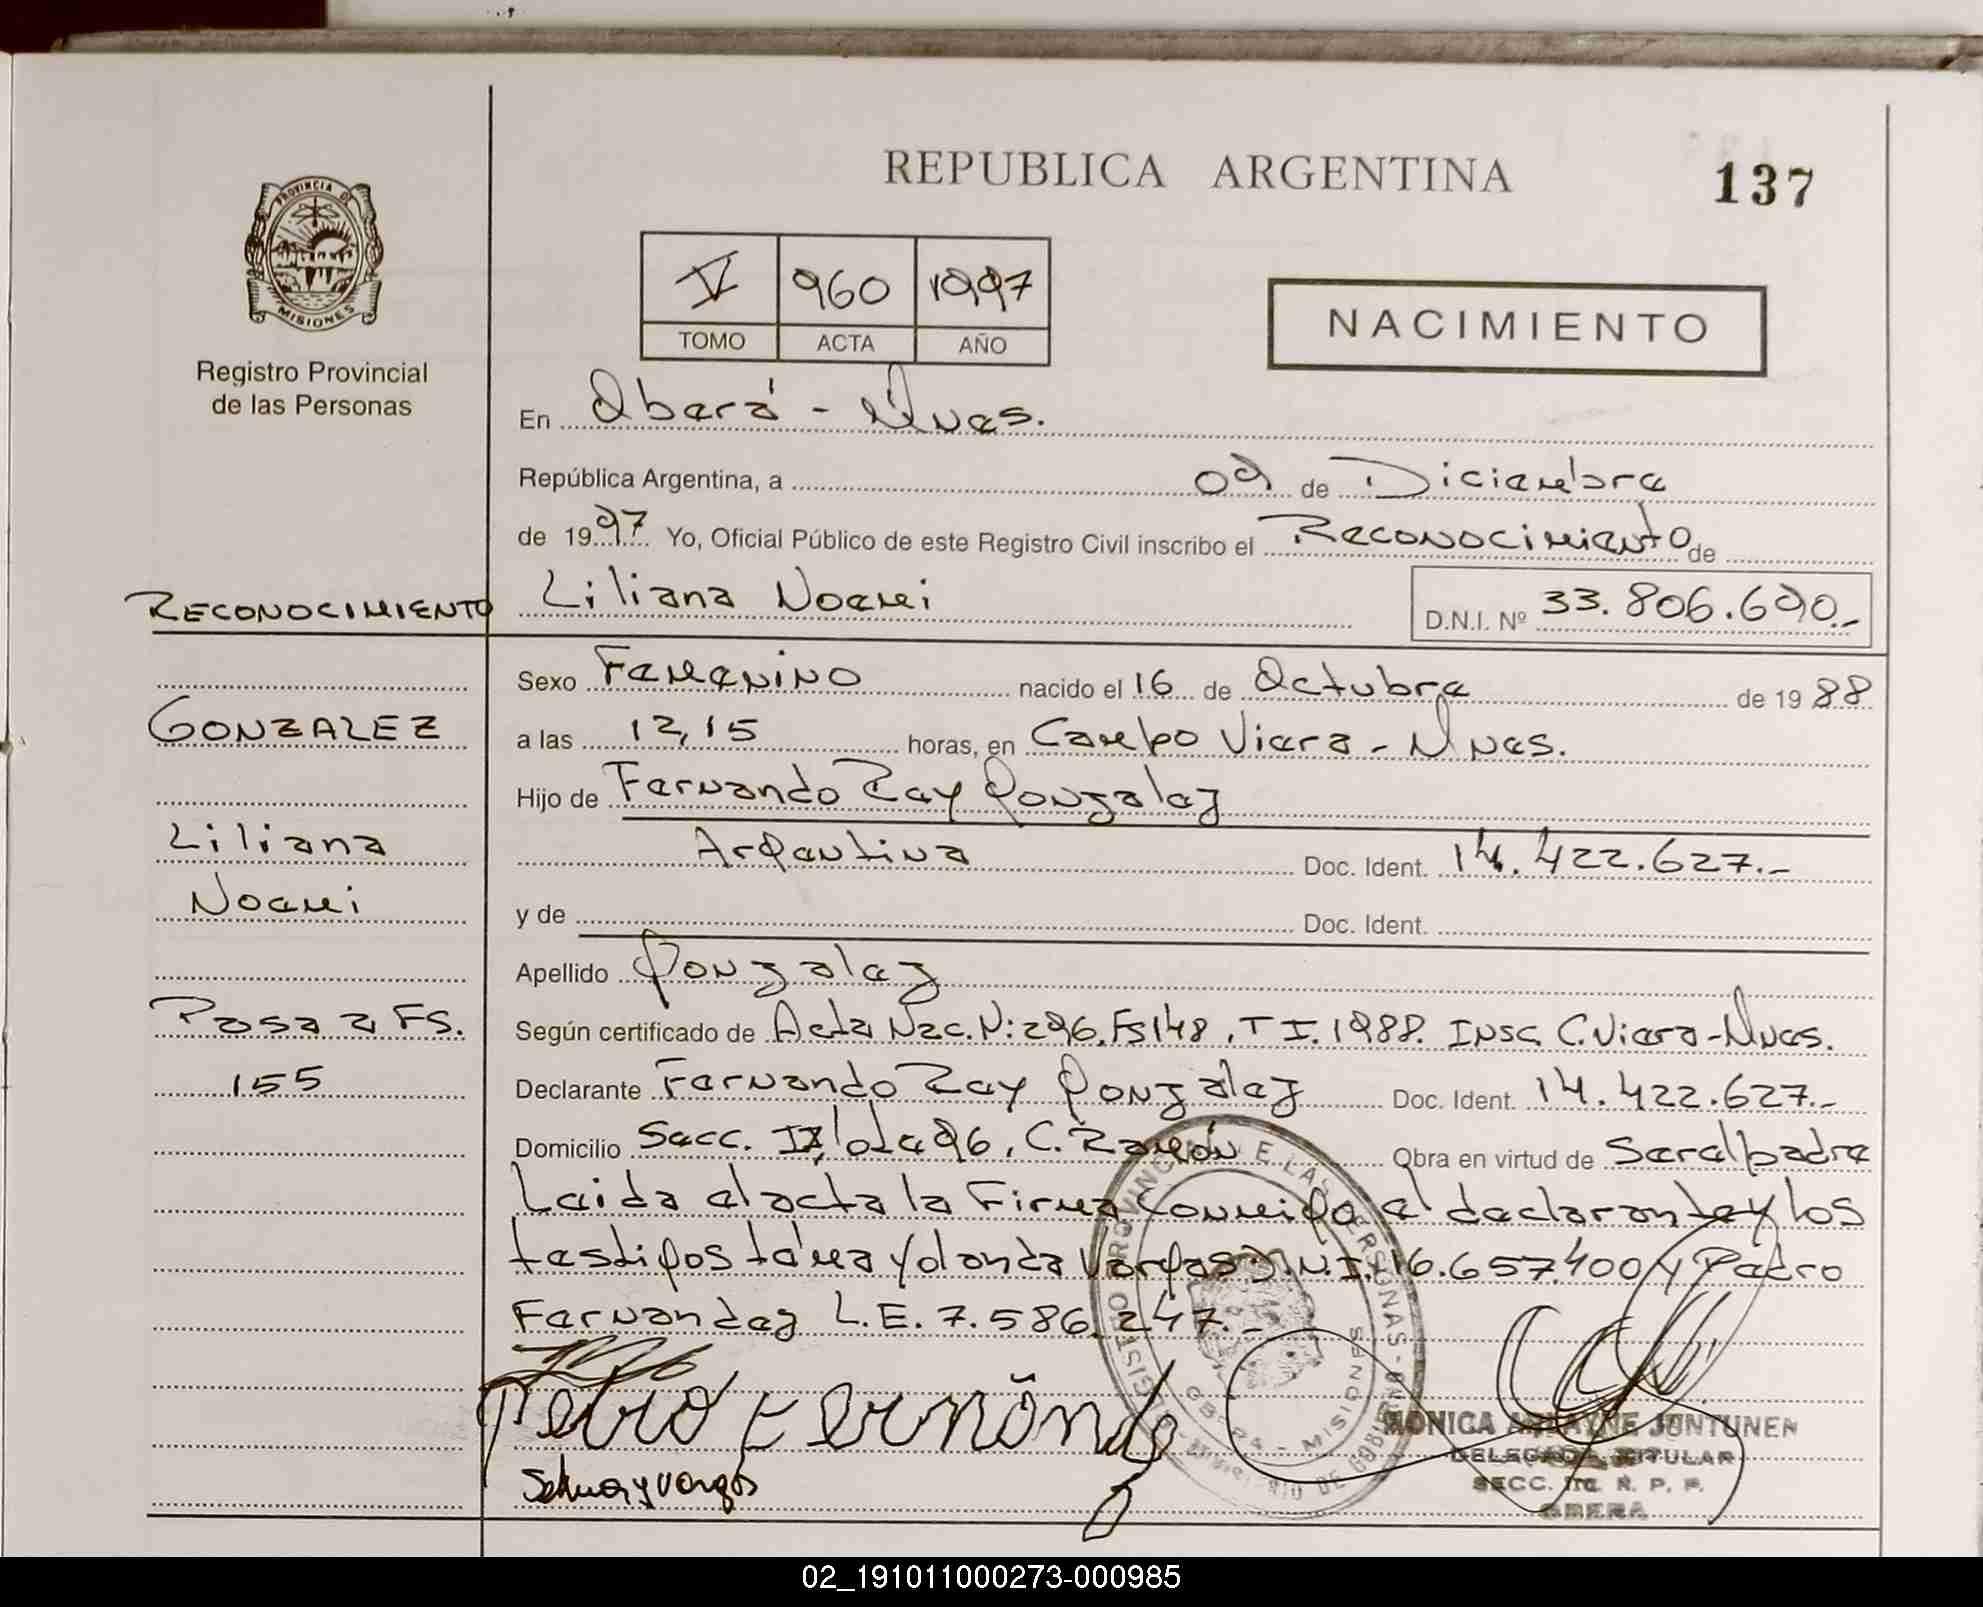 REPUBLICA ARGENTINA
137
PROVINCIA DE
MISIONES
Registro Provincial
de las Personas
V 960 1997
TOMO ACTA AÑO
NACIMIENTO
En Oberá - Mnes.
República Argentina, a 09 de Diciembre
de 1997 Yo, Oficial Público de este Registro Civil inscribo el Reconocimiento de
RECONOCIMIENTO
Liliana Noemi
D.N.I. Nº 33.806.690.-
Sexo Femenino nacido el 16 de Octubre de 1988
GONZALEZ
a las 12,15 horas, en Campo Viera - Mnes.
Hijo de Fernando Rey Gonzalez
Liliana
Argentina Doc. Ident. 14.422.627.-
Noemi
y de Doc. Ident.
Apellido Gonzalez
Pasa a FS.
155
Según certificado de Acta Nac. N: 296, Fs 148, T I. 1988. Insc. C. Viera - Mnes.
Declarante Fernando Rey Gonzalez Doc. Ident. 14.422.627.-
Domicilio Secc. lote 96, C. Ramón Obra en virtud de Ser el padre
Leida el acta la Firma Conmigo el declarante y los
testigos Yolanda Vargas D.N.I. 16.657.400 y Pedro
Fernandez L.E. 7.586.247.-
Pedro Fernández
MONICA JUNTUNEN
DELEGADA TITULAR
SECC. R. P. P.
OBERA
02_191011000273-000985